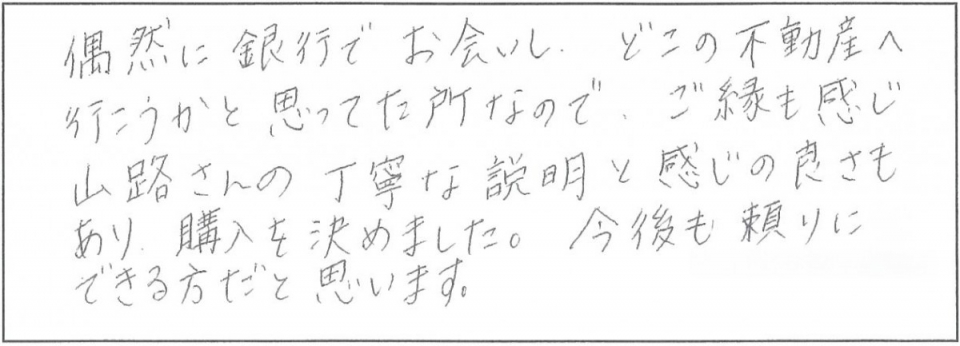 偶然に銀行でお会いし、どこの不動産へ
行こうかと思ってた所なので、ご縁も感じ
山路さんの丁寧な説明と感じの良さも
あり、購入を決めました。今後も頼りに
できる方だと思います。